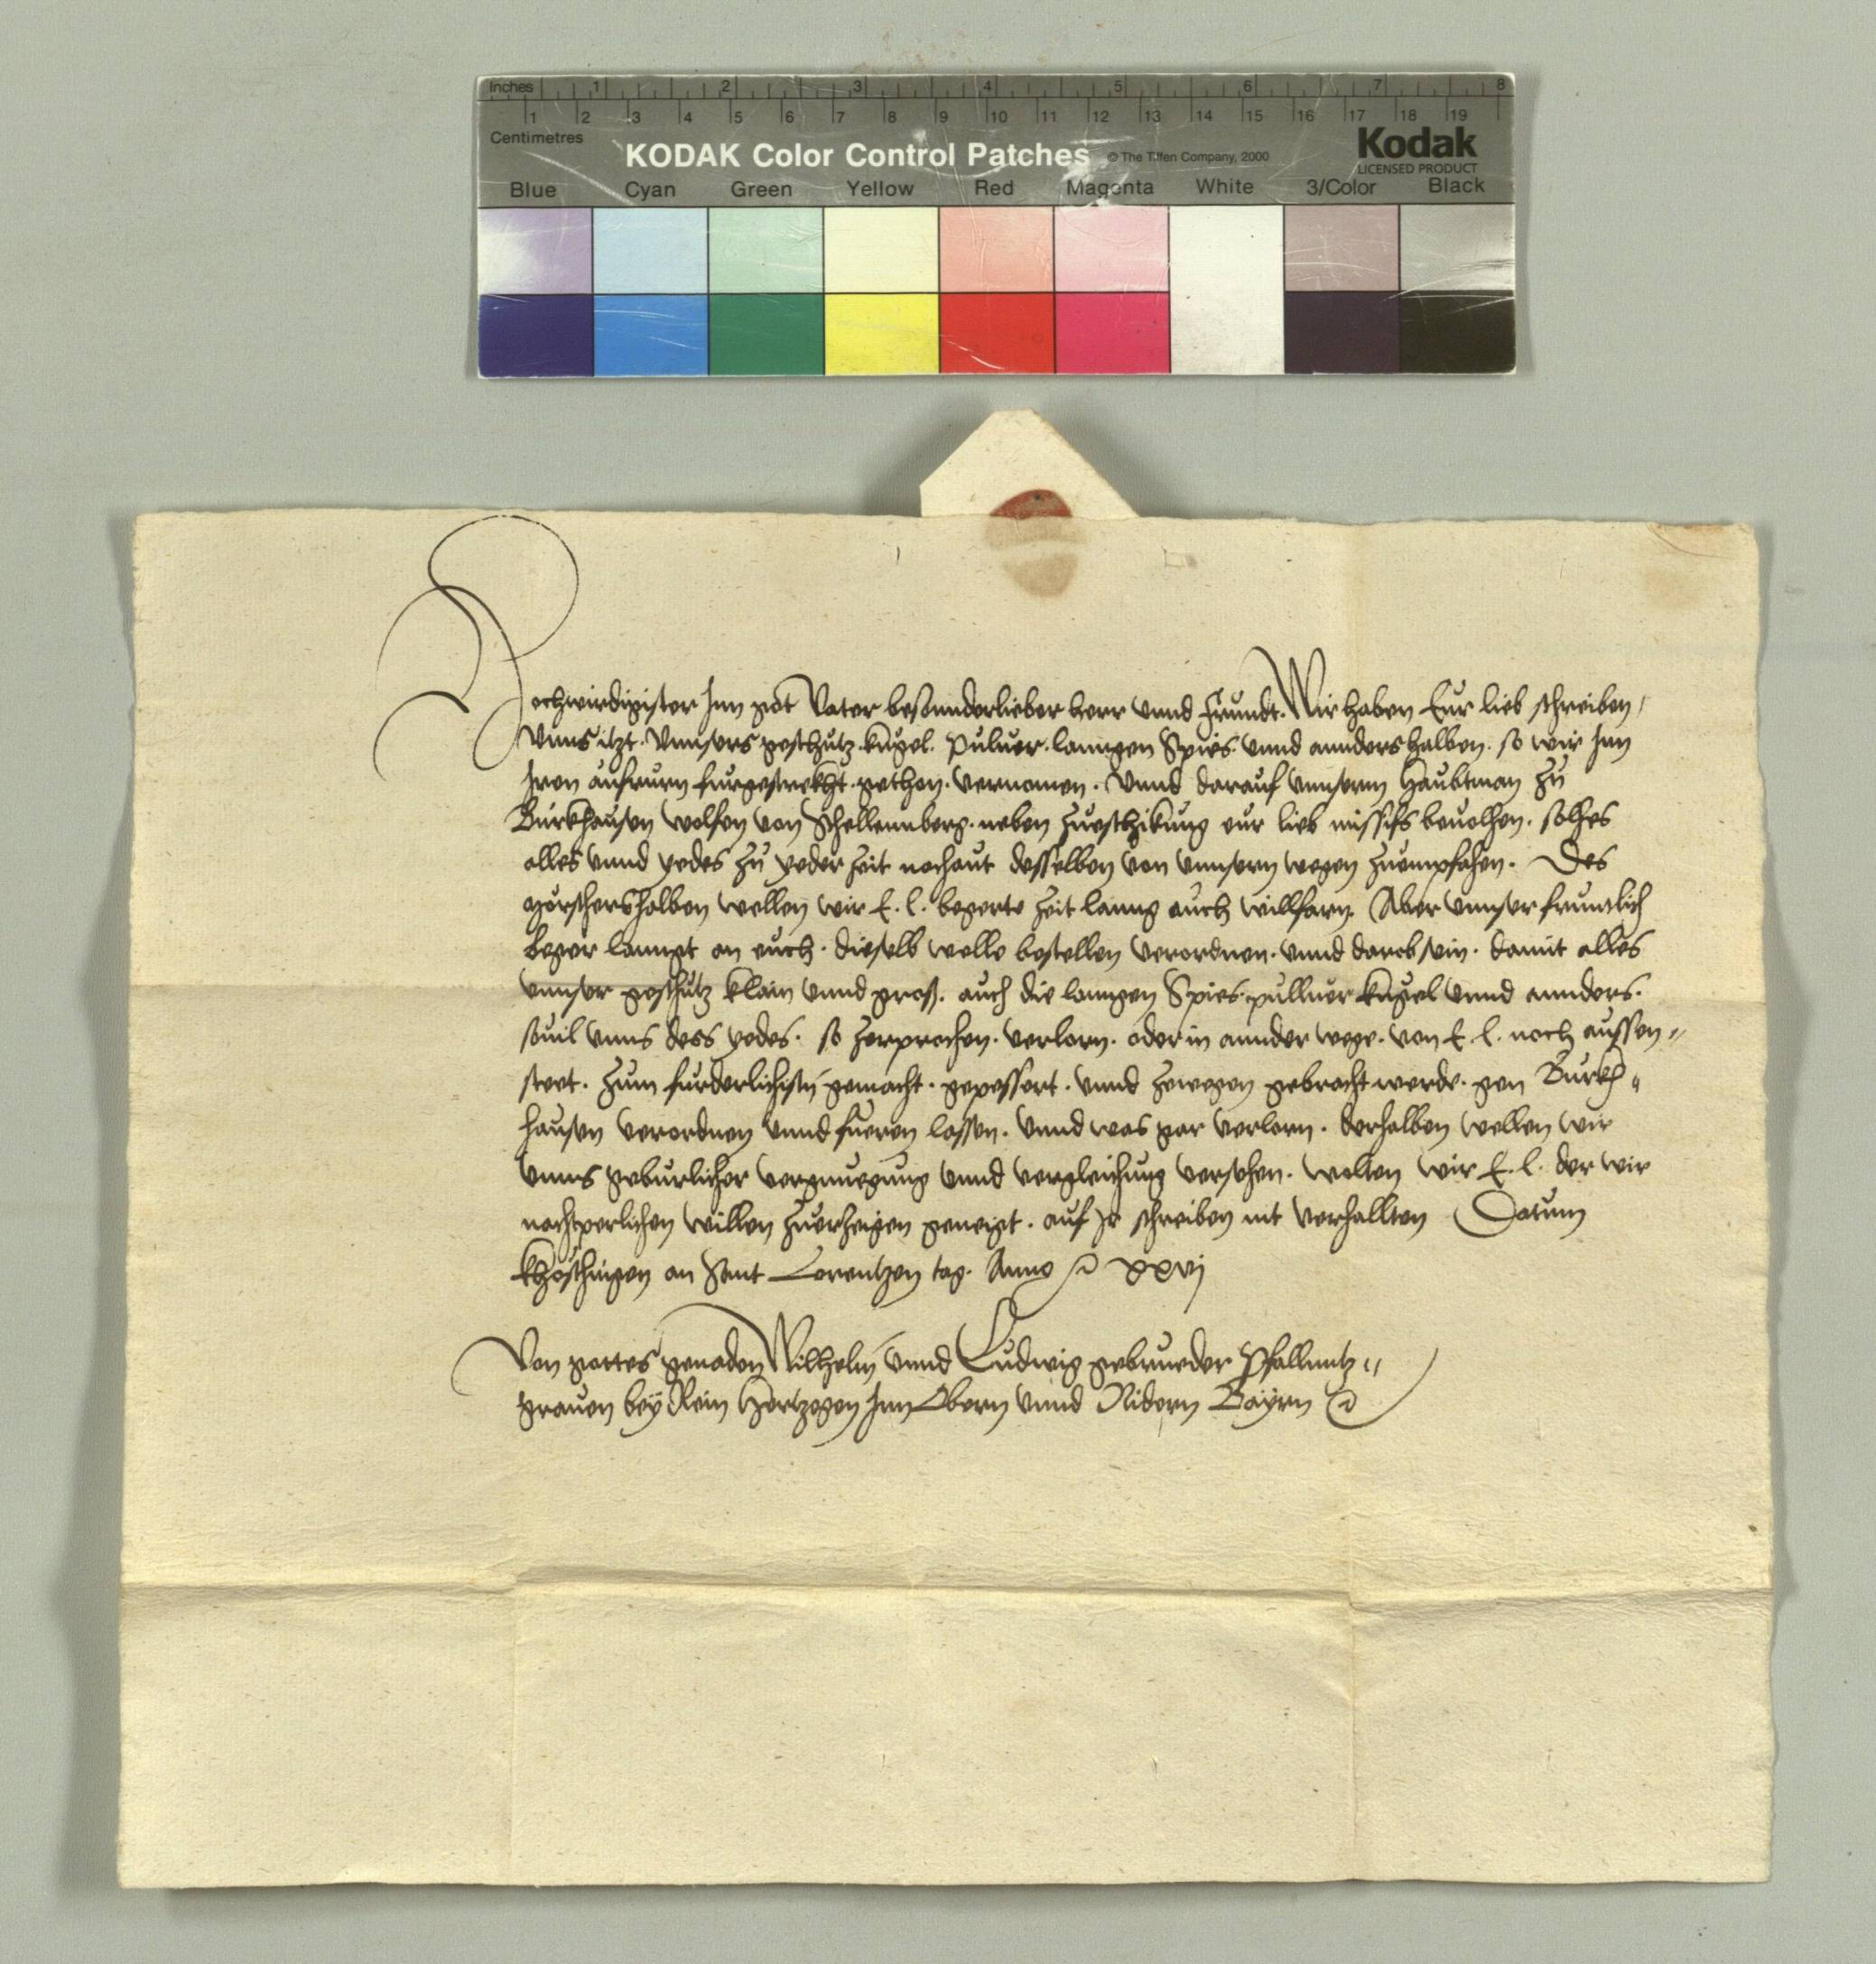 Inches 1 2 3 4 5 6 7 8
1 2 3 4 5 6 7 8 9 10 11 12 13 14 15 16 17 18 19
Centimetres
KODAK Color Control Patches © The Tiffen Company, 2000 Kodak
LICENSED PRODUCT
Blue Cyan Green Yellow Red Magenta White 3/Color Black
Hochwirdigister Inn got Vater besonnderlieber herr vnnd frundt. Wir haben Eur lieb schreiben,
vnns itzt. vnnsers geschutz. kugel. puluer. lanngen Spies. vnnd annders halben. so wir Inn
Iren aufrurn furgestrekht. gethon. vernomen. Vnnd darauf vnnserm Haubtman zu
Burkhausen Wolfen von Schellennberg. neben zueschikung eur lieb missifs beuolhen. solhes
alles vnnd yedes zu yeder zeit nachaut desselben von vnnsern wegen zuempfahen. Des
morschers halben wellen wir E. l. begerte zeit lanng auch willfarn. Aber vnnser fruntlich
beger lanngt an euch. dieselb welle bestellen verordnen. vnnd darob sein. damit alles
vnnser geschutz klain vnnd gross. auch die lanngen Spies. pulluer kugel vnnd annders.
souil vnns dess yedes. so zerprochen. verlorn. oder in annder wege. von E. l. noch aussen=
steet. zum furderlichistn gemacht. gepessert. vnnd zewegen gebracht werde. gen Burkh=
hausen verordnen vnnd fueren lassen. vnnd was gar verlorn. derhalben wellen wir
vnns geburlicher vergnuegung vnnd vergleichung versehen. wolten wir E. l. der wir
nachtperlichen willen zuerzeigen geneigt. auf Ir schreiben nit verhallten Datum
Khösching an Sant Lorentzen tag. Anno xxvj
Von gottes genaden Wilhelm vnnd Ludwig gebrueder Pfallnntz=
grauen bey Rein Hertzogen Inn Obern vnnd Nidern Bayrn